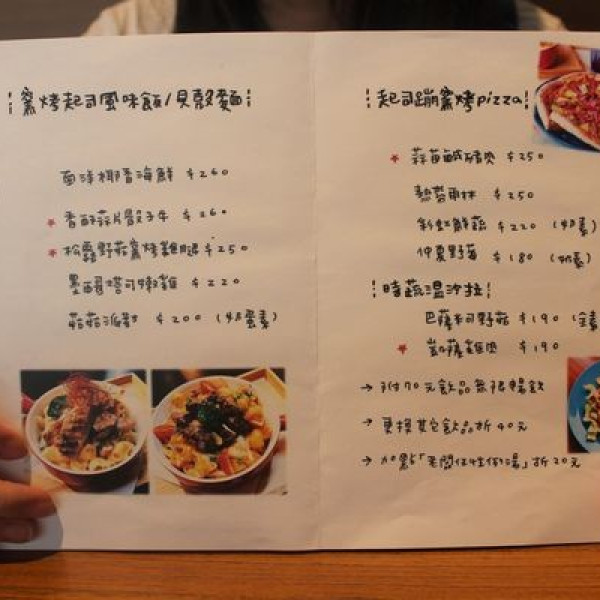 窯烤起司風味飯/貝殼麵
南洋椰香海鮮 $260
香酥蒜片骰子牛 $260
松露野菇窯烤雞腿 $250
墨西哥塔可嫩雞 $220
菇菇派對 $200 (奶蛋素)
起司蹦窯烤pizza
蒜苗鹹豬肉 $250
熱帶雨林 $250
彩虹鮮蔬 $220 (奶素)
仲夏野莓 $180 (奶素)
時蔬溫沙拉
巴薩米可野菇 $190 (全素
凱薩雞肉 $190
→ 附70元飲品無限暢飲
→ 更換其它飲品折40元
→ 加點「老闆任性例湯」折20元